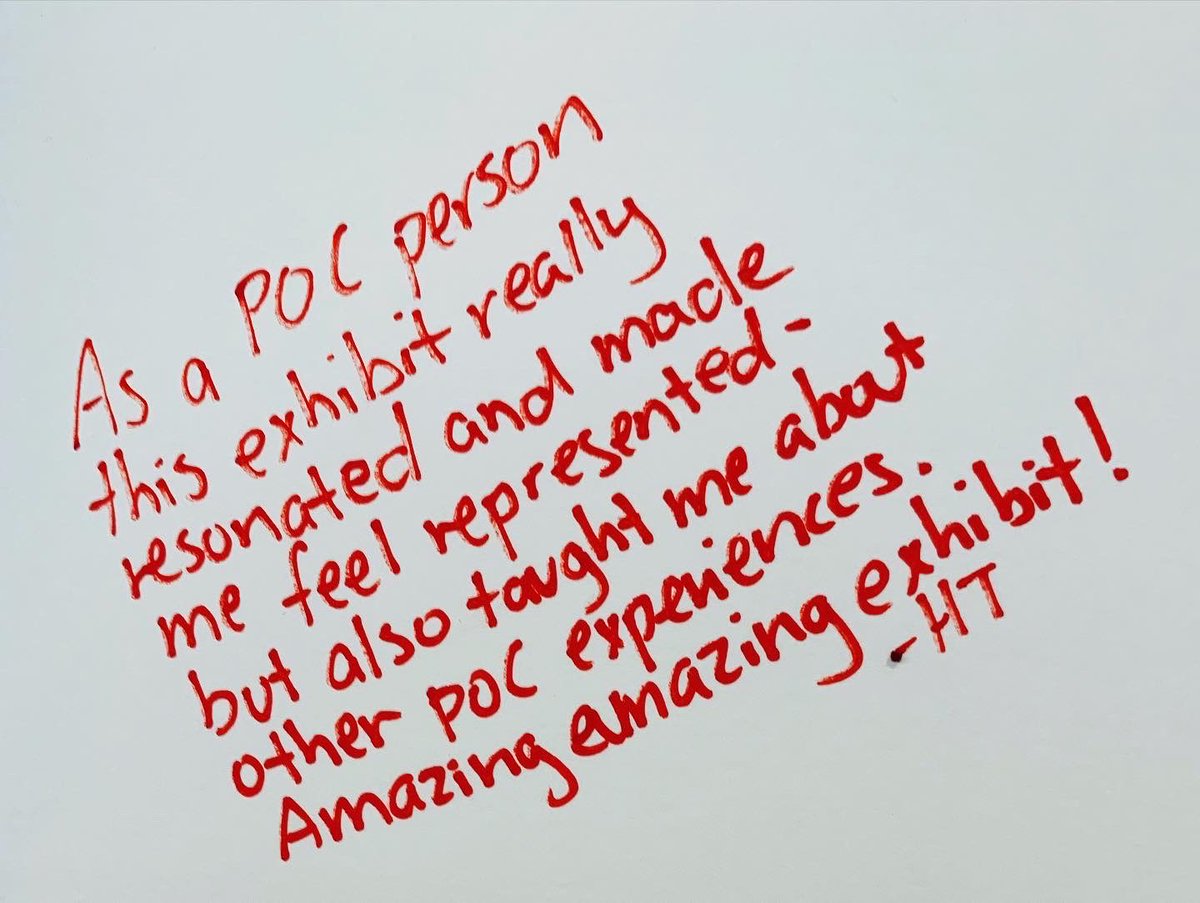 As a POC person
this exhibit really
resonated and made
me feel represented -
but also taught me about
other POC experiences.
Amazing amazing exhibit!
-HT